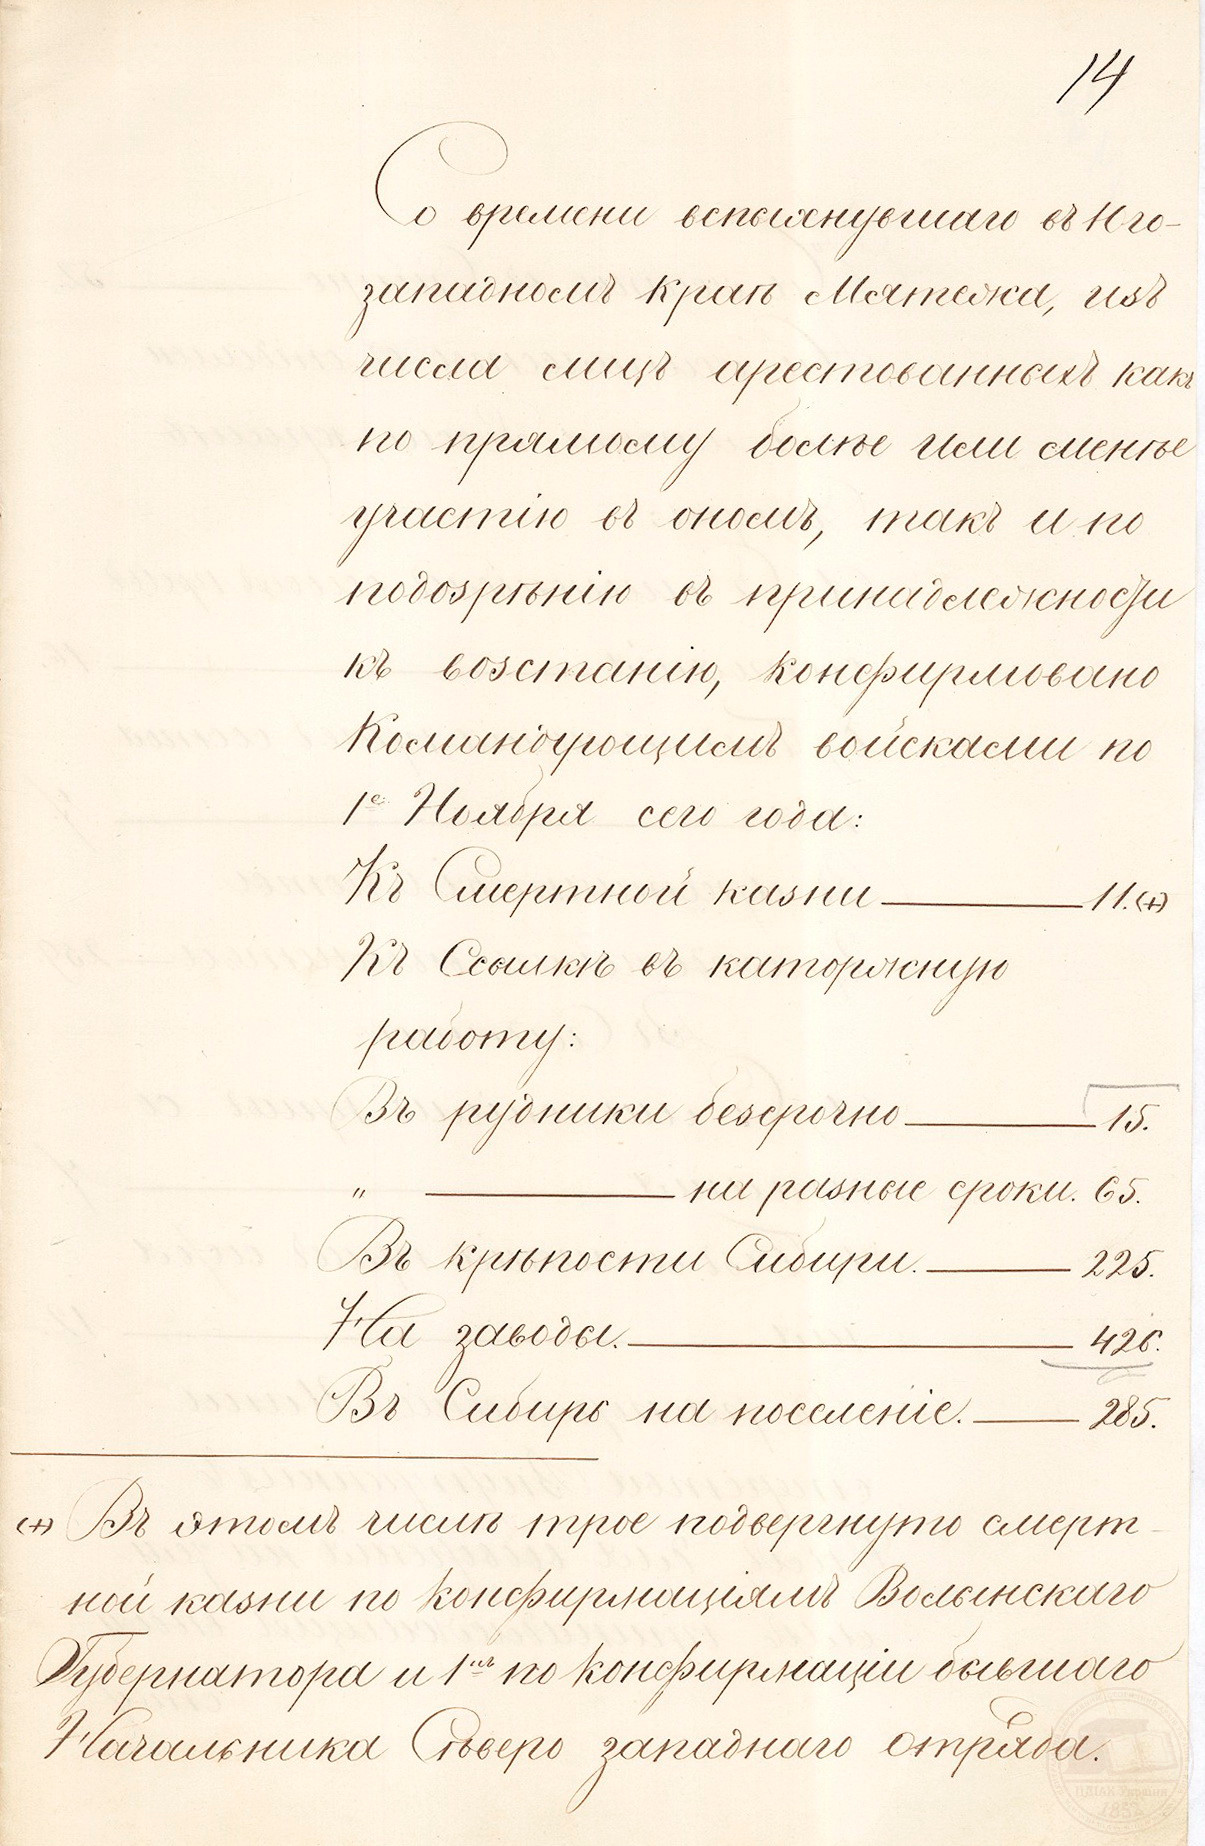 14
Со времени вспыхнувшаго въ Юго-
западномъ краѣ Мятежа, изъ
числа лицъ арестованныхъ какъ
по прямому болѣе или менѣе
участію въ ономъ, такъ и по
подозрѣнію въ принадлежности
къ возстанію, конфирмовано
Командующимъ войсками по
1е Ноября сего года:
Къ Смертной казни — 11.(+)
Къ Ссылкѣ въ каторжную
работу:
Въ рудники безсрочно — 15.
„ — на разные сроки. 65.
Въ крѣпости Сибири. — 225.
На заводы. — 426.
Въ Сибирь на поселеніе. — 285.
(+) Въ этомъ числѣ трое подвергнуто смерт-
ной казни по конфирмаціямъ Волынскаго
Губернатора и 1нъ по конфирмаціи бывшаго
Начальника Сѣверо западнаго отряда.
ЦДІАК України
1852